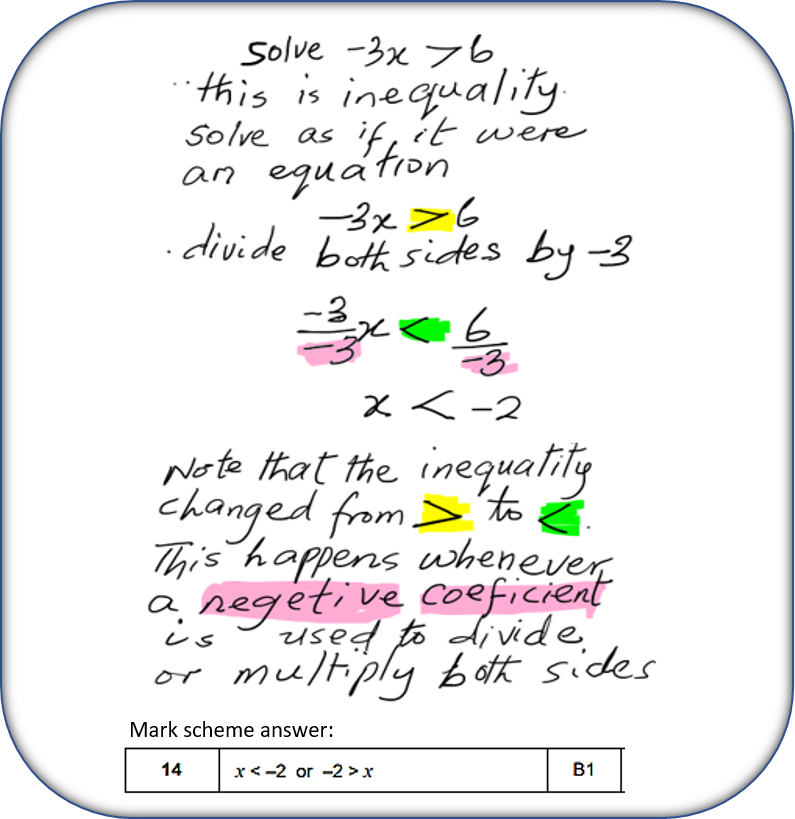 Solve -3x > 6
this is inequality.
solve as if it were
an equation
-3x > 6
. divide both sides by -3
-3/-3 x < 6/-3
x < -2
Note that the inequatity
changed from > to <.
This happens whenever
a negetive coeficient
is used to divide
or multiply both sides
Mark scheme answer:
14 x < –2 or –2 > x B1